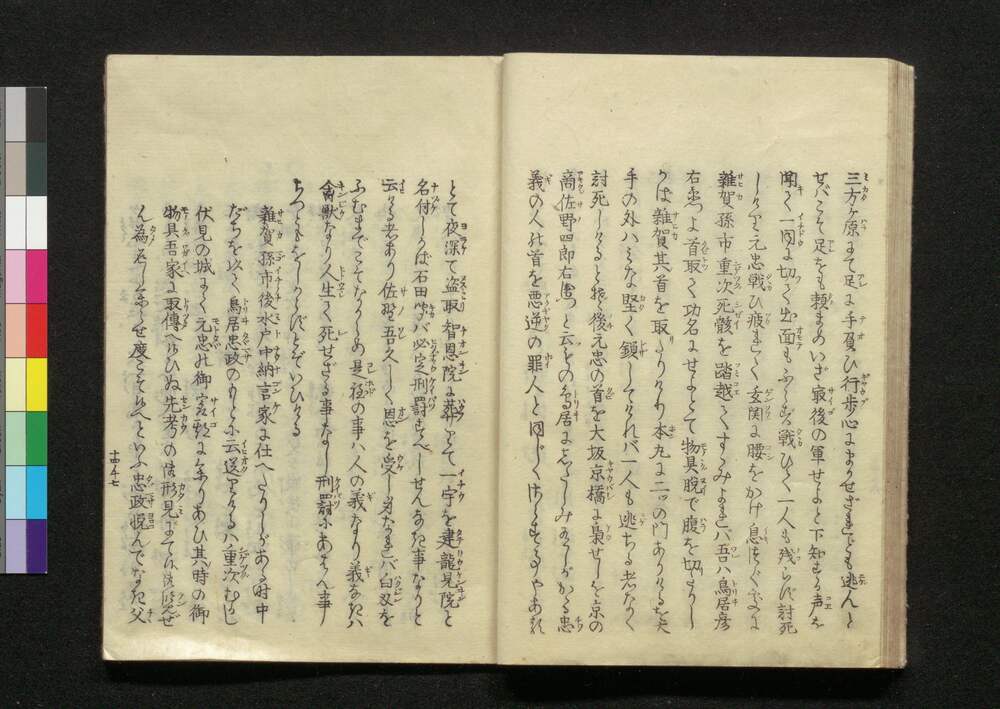 三方ヶ原にて足に手負ひ行歩心にまかせざれども逃んと
せバこそ足をも頼まめいざ最後の軍せよと下知する声を
聞く一同に切て出面もふらず戦ひて一人も残らず討死
しけり元忠戦ひ疲れて玄関に腰をかけ息つぐ所に
雑賀孫市重次死骸を踏越てすゝみよれバ吾ハ鳥居彦
右衛門よ首取て功名にせよとて物具脱で腹を切りし
かば雑賀其首を取たりけり本丸に二ッの門ありけるを大
手の外ハミな堅く鎖してけれバ一人も逃ちる者なく
討死しけるとぞ後元忠の首を大坂京橋に梟せしを京の
商佐野四郎右衛門と云もの鳥居にしたしみありしがかゝる忠
義の人の首を悪逆の罪人と同じくすることやある
とて夜深て盗取智恩院に葬りて一宇を建龍見院と
名付しかば石田聞バ必定刑罰すべしせんなき事なりと
云ける者あり佐野吾久しく恩を受し身なれバ白刃を
ふむまでこそなからめ是程の事ハ人の義なり義なきハ
禽獣なり人生て死せざる事なし刑罰にあはん事
ちつともをしからずとぞいひける
雑賀孫市後水戸中納言家に仕へたりしがある時中
だちを以て鳥居忠政のもとに云送りけるハ重次むかし
伏見の城にて元忠の御最期に参りあひ其時の御
物具吾家に取傳へ候ひぬ先考の御形見にて候へバ御覧ぜ
ん為参らせ度こそ候へといふ忠政悦んでなき父
十四ノ七